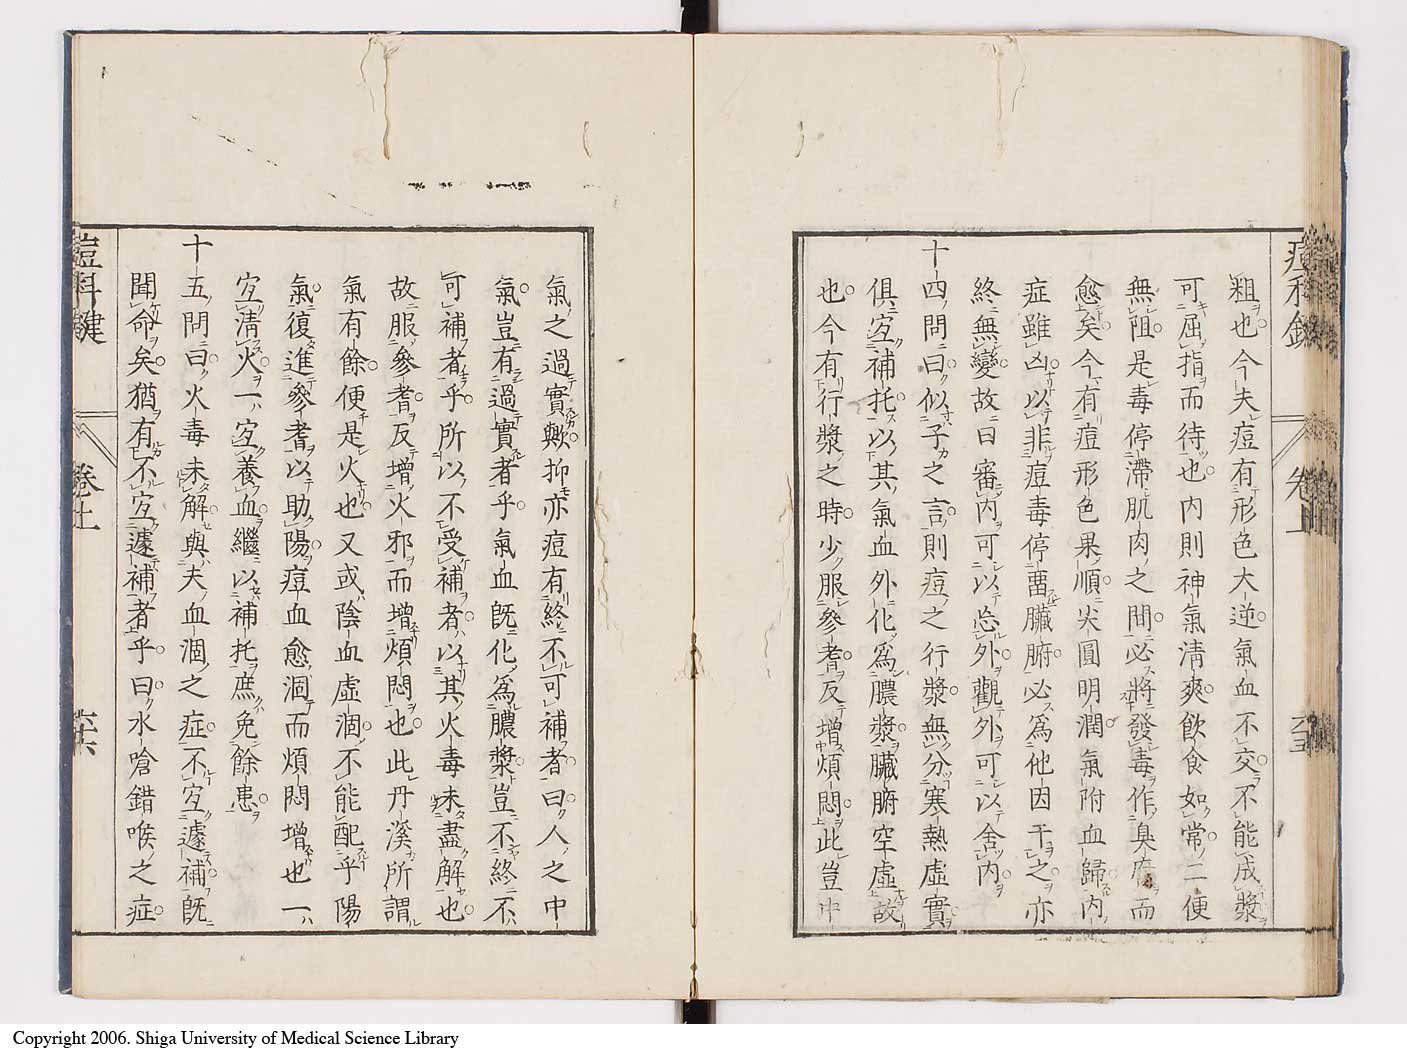 粗也今夫痘有形色大逆氣血不交不能成漿
可屈指而待也内則神氣清爽飲食如常二便
無阻是毒停滯肌肉之間必將發毒作臭而
愈矣今有痘形色果順尖圓明潤氣附血歸内
症雖凶以非痘毒停畜臟腑必爲他因干之亦
終無變故曰審内可以忘外觀外可以舍内
十四問曰似子之言則痘之行漿無分寒熱虛實
俱宐補托以其氣血外化爲膿漿臟腑空虛故
也今有行漿之時少服參耆反增煩悶此豈中
氣之過實歟抑亦痘有終不可補者曰人之中
氣豈有過實者乎氣血旣化爲膿漿豈不終不
可補者乎所以不受補者以其火毒未盡解也
故服參耆反增火邪而增煩悶也此丹溪所謂
氣有餘便是火也又或陰血虛涸不能配乎陽
氣復進參耆以助陽痘血愈涸而煩悶增也一
宐清火一宐養血繼以補托庶免餘患
十五問曰火毒未解與夫血涸之症不宐遽補旣
聞命矣猶有不宐遽補者乎曰水嗆錯喉之症
痘科鍵
卷上
六
Copyright 2006. Shiga University of Medical Science Library